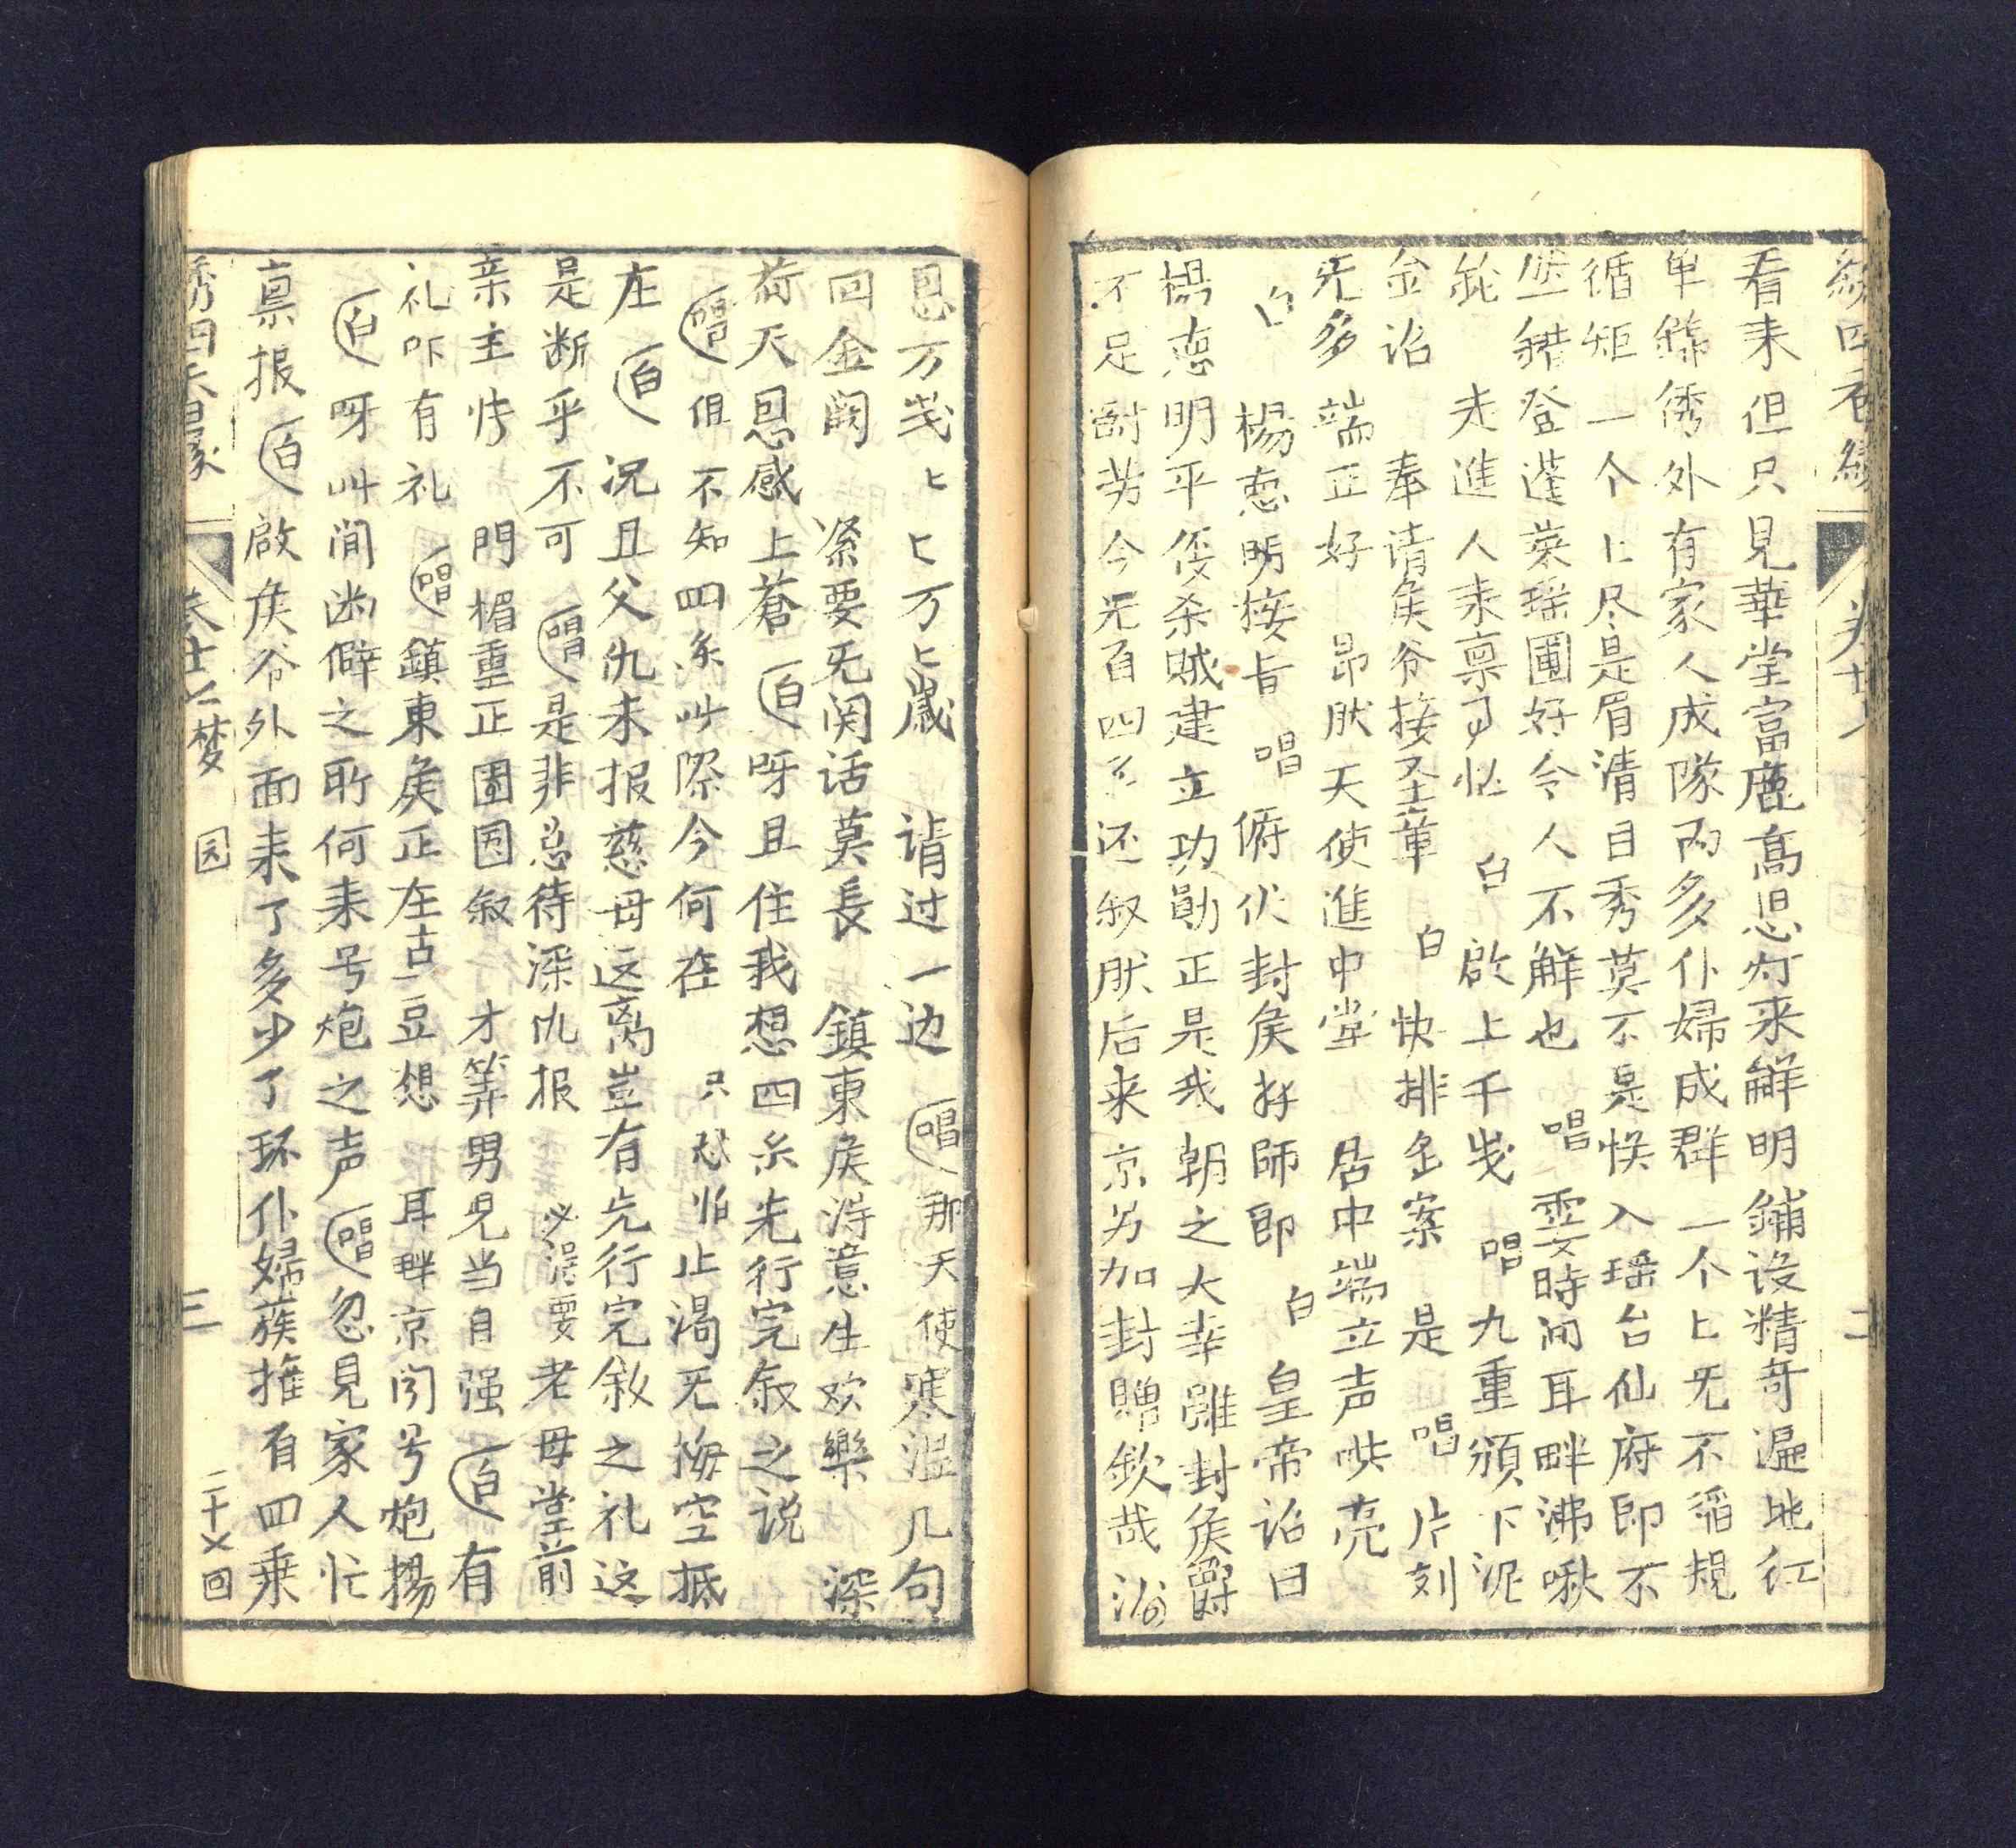 看来但只見華堂富鹿髙思灯来鮮明鋪设精奇遍地红
单錦绣外有家人成隊两多仆婦成群一个匕旡不稻規
循矩一个匕尽是眉清目秀莫不是悮入瑶台仙府即不
错登蓬莱瑶圃好令人不解也 唱 霎時间耳畔沸啾
走進人来禀了忙 白 啟上千岁 唱 九重頒下泥
金诏 奉请矦爷接圣章 白 快排香案 是 唱 片刻
旡多端正好 昂肰天使進中堂 居中端立声哄亮
白 楊悳明接旨 唱 俯伏封矦好師郎 白 皇帝诏曰
楊悳明平倭杀贼建立功勛正是我朝之大幸雖封矦爵
不足酧劳今旡百四子还叙肰后来京另加封贈欽哉
恩万岁匕匕万匕歲 请过一边 唱 那天使寒温几句
回金闕 紧要旡関话莫長 鎮東矦得意生欢樂 深
荷天恩感上蒼 白 呀且住我想四糸先行完叙之说
唱 但不知四糸此際今何在 只愁怕止渴旡梅空抵
庄 白 况且父仇未报慈母远离豈有先行完叙之礼这
是断乎不可 唱 是非总待深仇报 必得要老母堂前
亲主持 門楣重正團圆叙 才筭男兒当自强 白 有
礼吓有礼 唱 鎮東矦正在古豆想 耳畔京闻号炮揚
白 呀此间幽僻之所何来号炮之声 唱 忽見家人忙
禀报 白 啟矦爷外面来了多少了环仆婦蔟擁百四乗
卷廿七 梦 园
三
二十七回
二